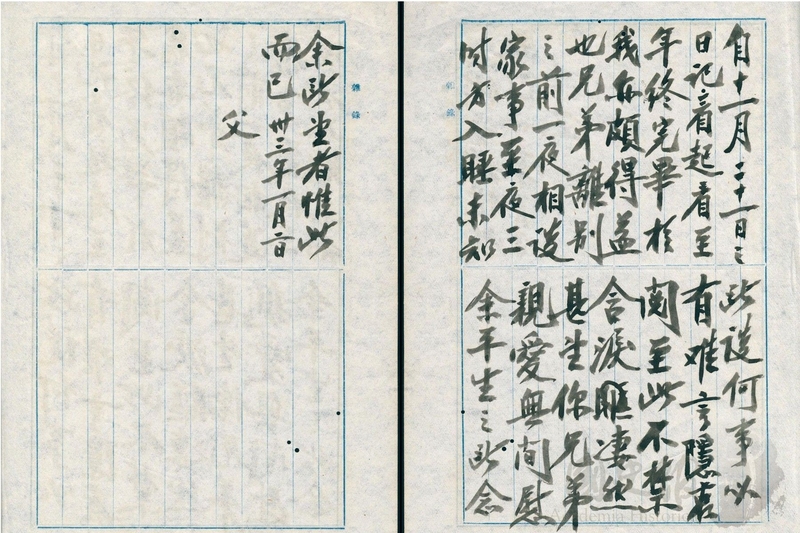 自十一月二十一日之
日記看起看至
年終完畢於
我亦頗得益
也兄弟離別
之前一夜相談
家事至夜三
時方入睡未知
所談何事必
有難言隱衷
閱至此不禁
含淚悽然
甚望你兄弟
親愛無間慰
余平生之所念
雜錄
雜錄
余所望者惟此
而已 卅三年一月二日
父
Academia Historica